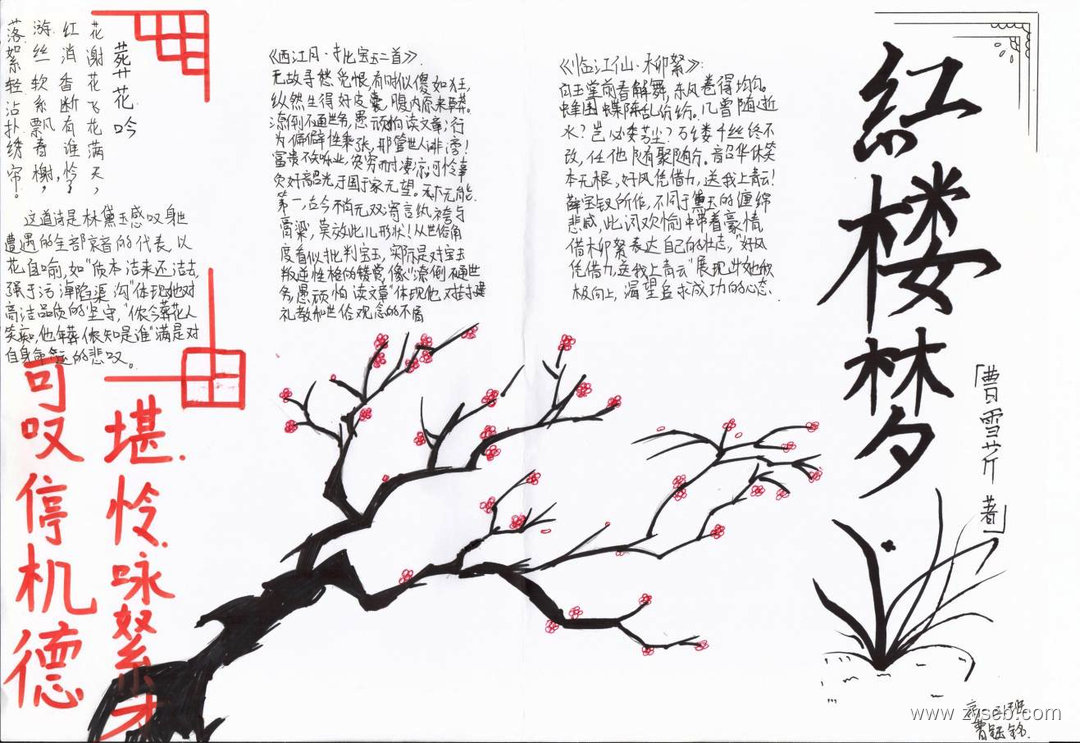 紅楼梦
「曹雪芹 著」
《临江仙·柳絮》:
白玉堂前春解舞,东风卷得均匀。
蜂围蝶阵乱纷纷。几曾随逝
水?岂必委芳尘?万缕千丝终不
改,任他随聚随分。韶华休笑
本无根,好风凭借力,送我上青云!
薛宝钗所作,不同于黛玉的缠绵
悲感,此词欢愉中带着豪情,
借柳絮表达自己的壮志,“好风
凭借力,送我上青云”展现出她积
极向上,渴望追求成功的心态.
《西江月·批宝玉二首》.
无故寻愁觅恨,有时似傻如狂,
纵然生得好皮囊,腹内原来草莽.
潦倒不通世务,愚顽怕读文章;行
为偏僻性乖张,那管世人诽谤!
富贵不知乐业,贫穷而耐凄凉,可怜辜
负好韶光,于国于家无望。天下无能
第一,古今不肖无双;寄言纨袴与
膏粱,莫效此儿形状!从世俗角
度看似批判宝玉,实际是对宝玉
叛逆性格的赞赏,像“潦倒不通世
务,愚顽怕读文章”体现他对封建
礼教和世俗观念的不屑
葬花吟
花谢花飞花满天,
红消香断有谁怜?
游丝软系飘春榭,
落絮轻沾扑绣帘。
这首诗是林黛玉感叹身世
遭遇的全部哀音的代表,以
花自喻,如“质本洁来还洁去,
强于污淖陷渠沟”体现她对
高洁品质的坚守,“侬今葬花人
笑痴,他年葬侬知是谁”满是对
自身命运的悲叹。
堪怜咏絮才
可叹停机德
www.zyseb.com